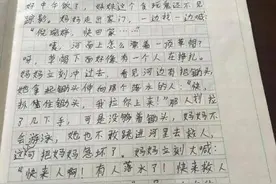 好中午饭了，妈妈这个贪玩鬼还不见
踪影。妈妈走出家门，一边找一边喊：
快回家……"
咦，河面上怎么漂着一顶草帽？
呀，草帽下面好像有一个人在挣扎。
妈妈立刻冲过去，看见河边有把锄头，
她拿起锄头伸向那个落水的人："快，
抓紧住锄头，我拉你上来！"那人抓
了几下手，可是没够着锄头，妈妈不
会游泳，她也不敢跳进河里去救人，
这可把妈妈急坏了。妈妈立刻大喊：
"快来人啊！有人落水了！快来救人